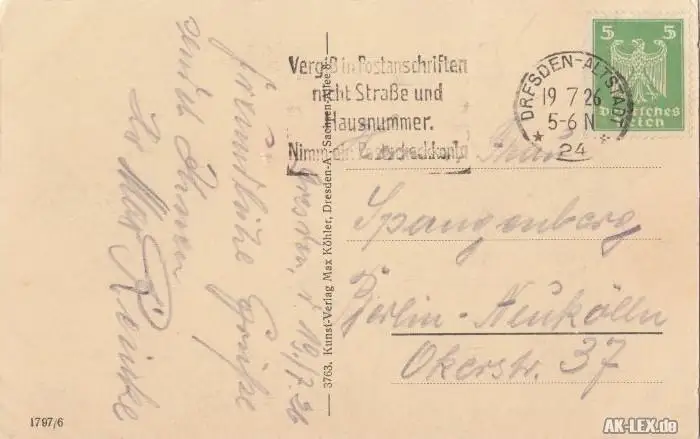 Dresden, d. 19./7. 26
freundliche Grüße
sendet Ihnen
Max
Vergiß in Postanschriften
nicht Straße und
Hausnummer.
Nimm ein Postscheckkonto
DRESDEN-ALTSTADT
19 7 26
5-6 N
* 24 *
5 5
Deutsches
Reich
Frau
Spangenberg
Berlin-Neukölln
Okerstr. 37
3763. Kunst-Verlag Max Köhler, Dresden-A., Sachsen-Allee 8.
1797/6
AK-LEX.de